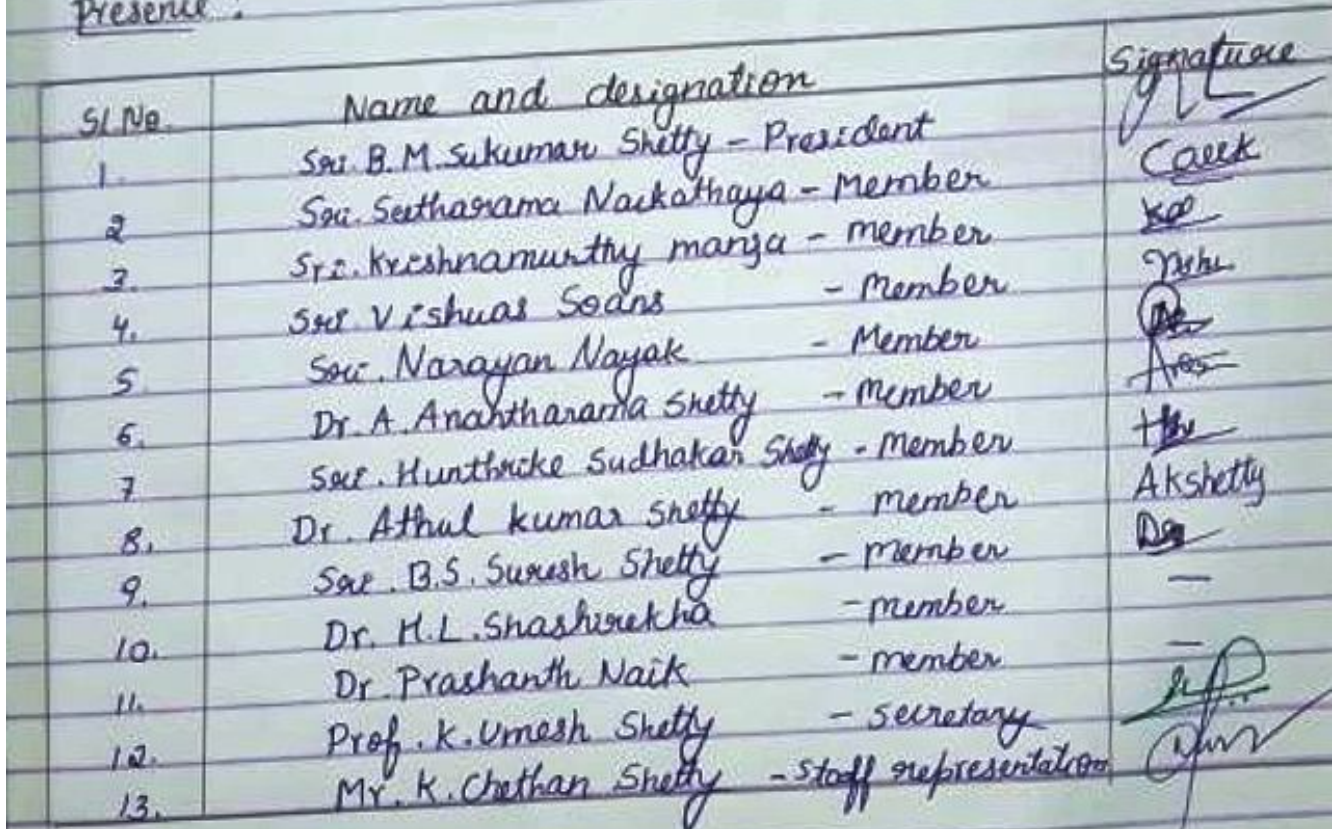 Presence :
Sl No. Name and designation Signature
1. Sri. B.M. Sukumar Shetty - President
2 Sri. Seetharama Nackathaya - Member
3. Sri. Krishnamurthy manja - member
4. Sri Vishwas Soans - member
5 Sri. Narayan Nayak - Member
6. Dr. A. Anantharama Shetty - member
7 Sri. Hunthrike Sudhakar Shetty - member
8. Dr. Athul kumar Shetty - member Akshetty
9. Sri. B.S. Suresh Shetty - member
10. Dr. H.L. Shashirekha - member -
11. Dr. Prashanth Naik - member -
12. Prof. K. Umesh Shetty - Secretary
13. Mr. K. Chethan Shetty - Staff representation